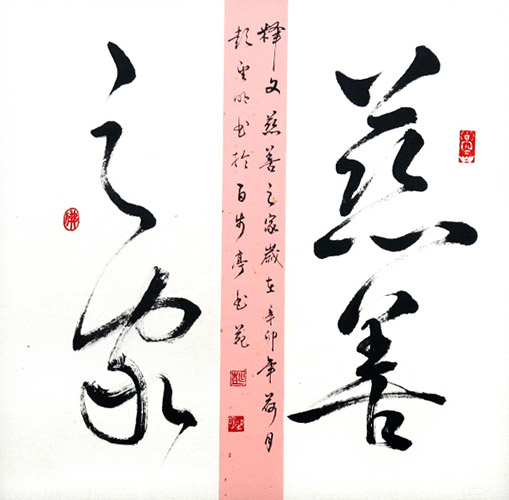 慈善
釋文慈善之家歲在辛卯年荷月
彭明书於百步亭书苑
之家